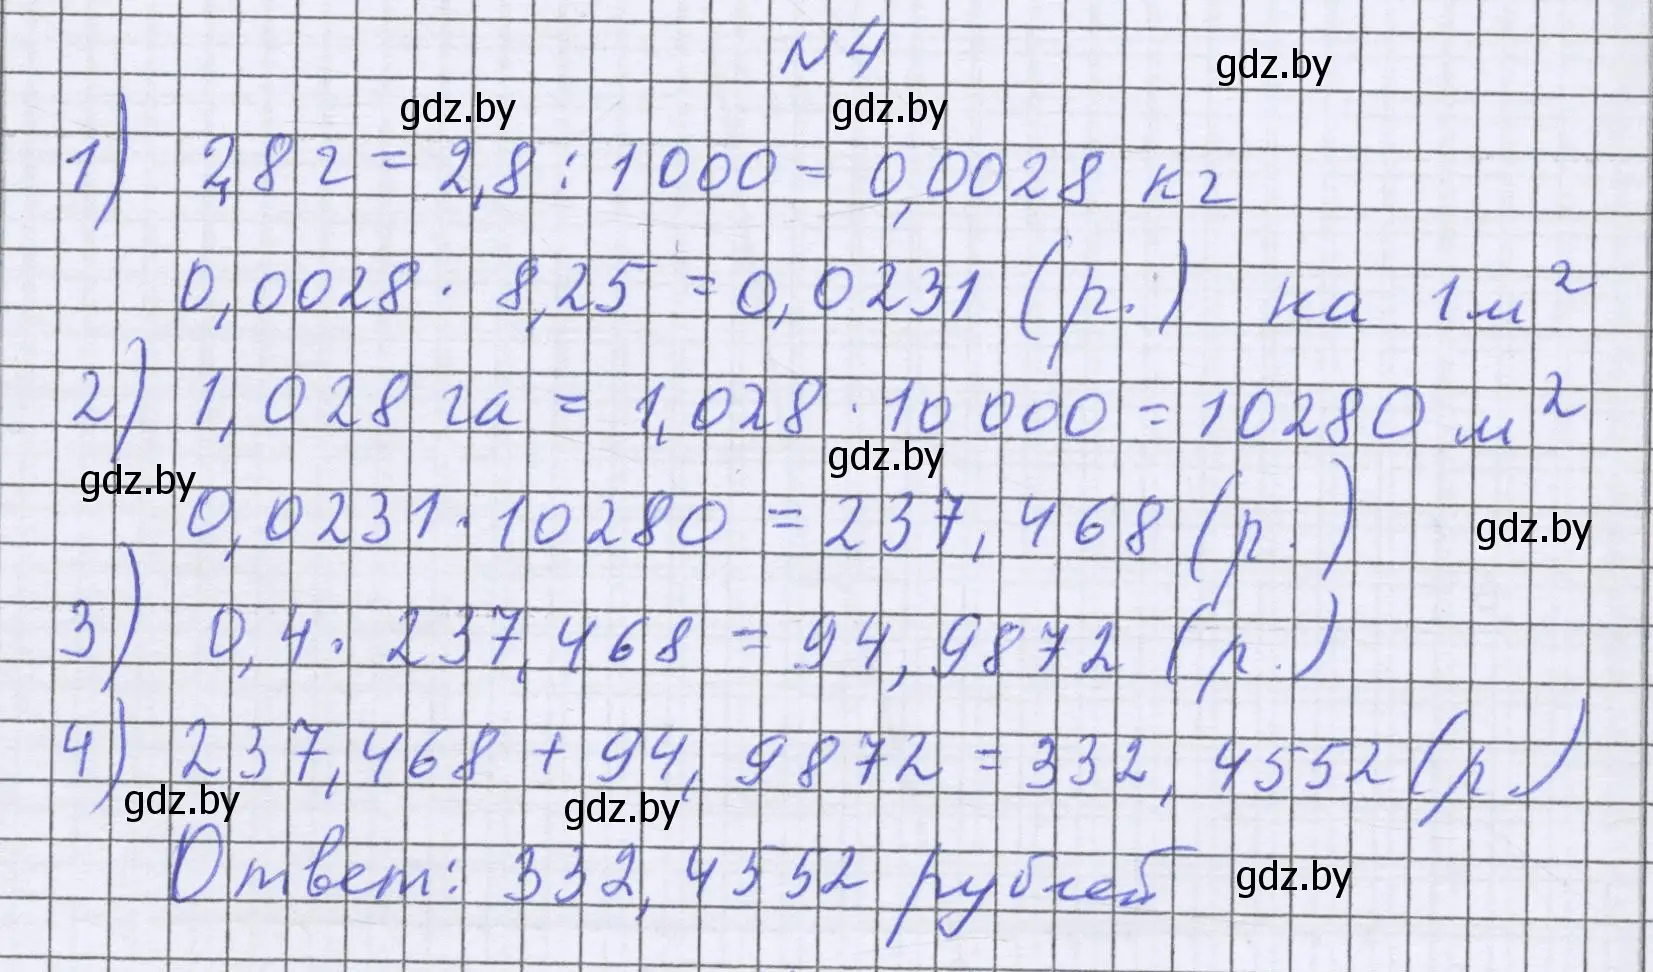 №4
1) 2,8 г = 2,8 : 1000 = 0,0028 кг
0,0028 · 8,25 = 0,0231 (р.) на 1 м²
2) 1,028 га = 1,028 · 10000 = 10280 м²
0,0231 · 10280 = 237,468 (р.)
3) 0,4 · 237,468 = 94,9872 (р.)
4) 237,468 + 94,9872 = 332,4552 (р.)
Ответ: 332,4552 рублей
gdz.by
gdz.by
gdz.by
gdz.by
gdz.by
gdz.by
gdz.by
gdz.by
gdz.by